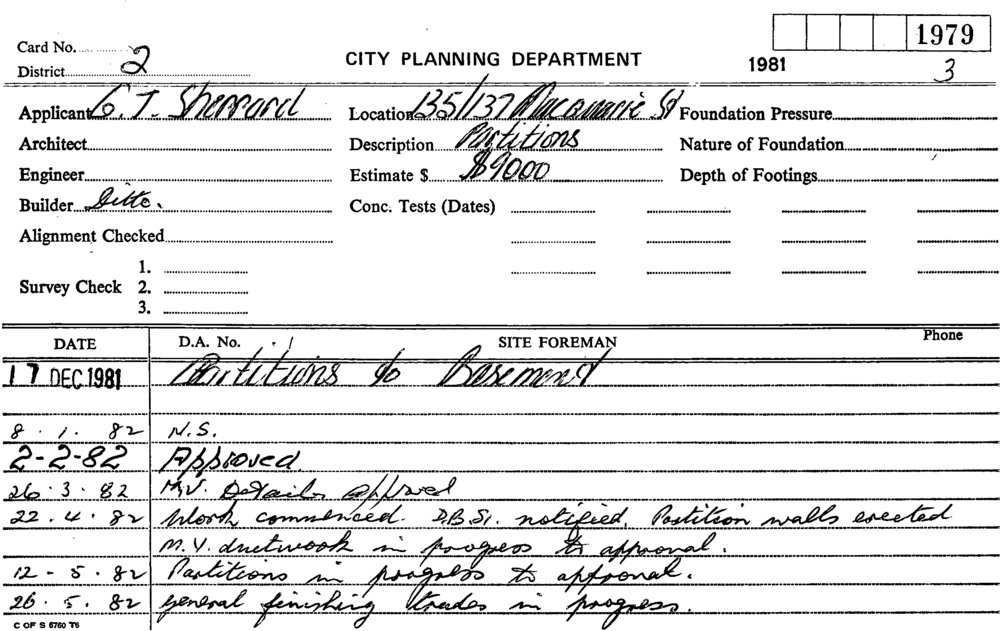 1979
Card No. 2
District
CITY PLANNING DEPARTMENT
1981
3
Applicant G. T. Sherrard Location 135/137 Macquarie St Foundation Pressure
Architect Description Partitions Nature of Foundation
Engineer Estimate $ $9000 Depth of Footings
Builder Ditto. Conc. Tests (Dates)
Alignment Checked
1.
Survey Check 2.
3.
DATE D.A. No. SITE FOREMAN Phone
17 DEC 1981 Partitions to Basement
8. 1. 82 N.S.
2-2-82 Approved.
26.3.82 M.V. Details approved
22.4.82 Work commenced. D.B.S. notified. Partition walls erected
M.V. ductwork in progress to approval.
12-5.82 Partitions in progress to approval.
26.5.82 general finishing trades in progress.
C OF S 6760 T6